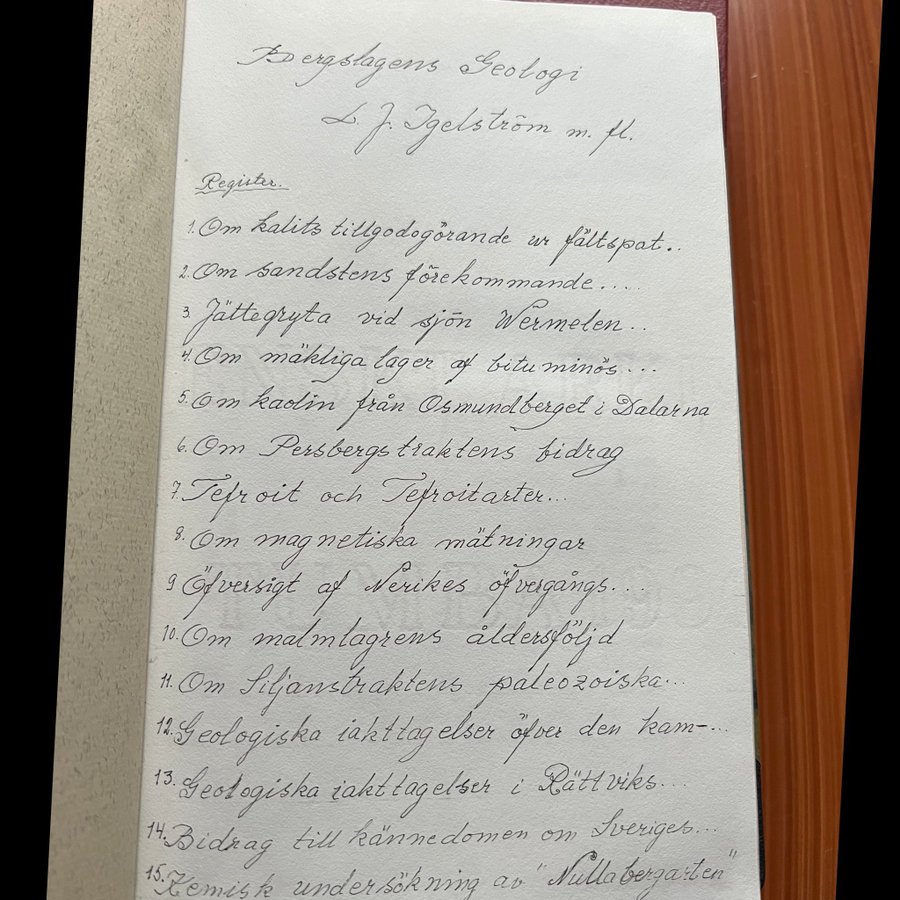 Bergslagens Geologi
L. J. Igelström m. fl.
Register.
1. Om kalits tillgodogörande ur fältspat..
2. Om sandstens förekommande....
3. Jättegryta vid sjön Wermelen..
4. Om mäkliga lager af bituminös...
5. Om kaolin från Osmundberget i Dalarna
6. Om Persbergstraktens bidrag
7. Tefroit och Tefroitarter...
8. Om magnetiska mätningar
9 Öfversigt af Nerikes öfvergångs...
10. Om malmlagrens åldersföljd
11. Om Siljanstraktens paleozoiska...
12. Geologiska iakttagelser öfver den kam-...
13. Geologiska iakttagelser i Rättviks...
14. Bidrag till kännedomen om Sveriges...
15. Kemisk undersökning av "Nullabergarten"